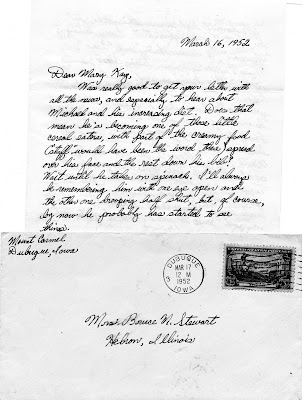 March 16, 1952
Dear Mary Kay,
Was really good to get your letter with
all the news, and especially to hear about
Michael and his increasing diet. Does that
mean he's becoming one of those little
cereal eaters, with part of the creamy food
would have been the word there) spread
over his face and the rest down his bib?
Wait until he takes on spinach. I'll always
be remembering him with one eye open and
the other one drooping half shut, but, of course,
by now he probably has started to see
things.
Mount Carmel
Dubuque, Iowa
DUBUQUE
MAR 17
12 M
1952
IOWA
Mrs. Bruce N. Stewart
Hebron, Illinois